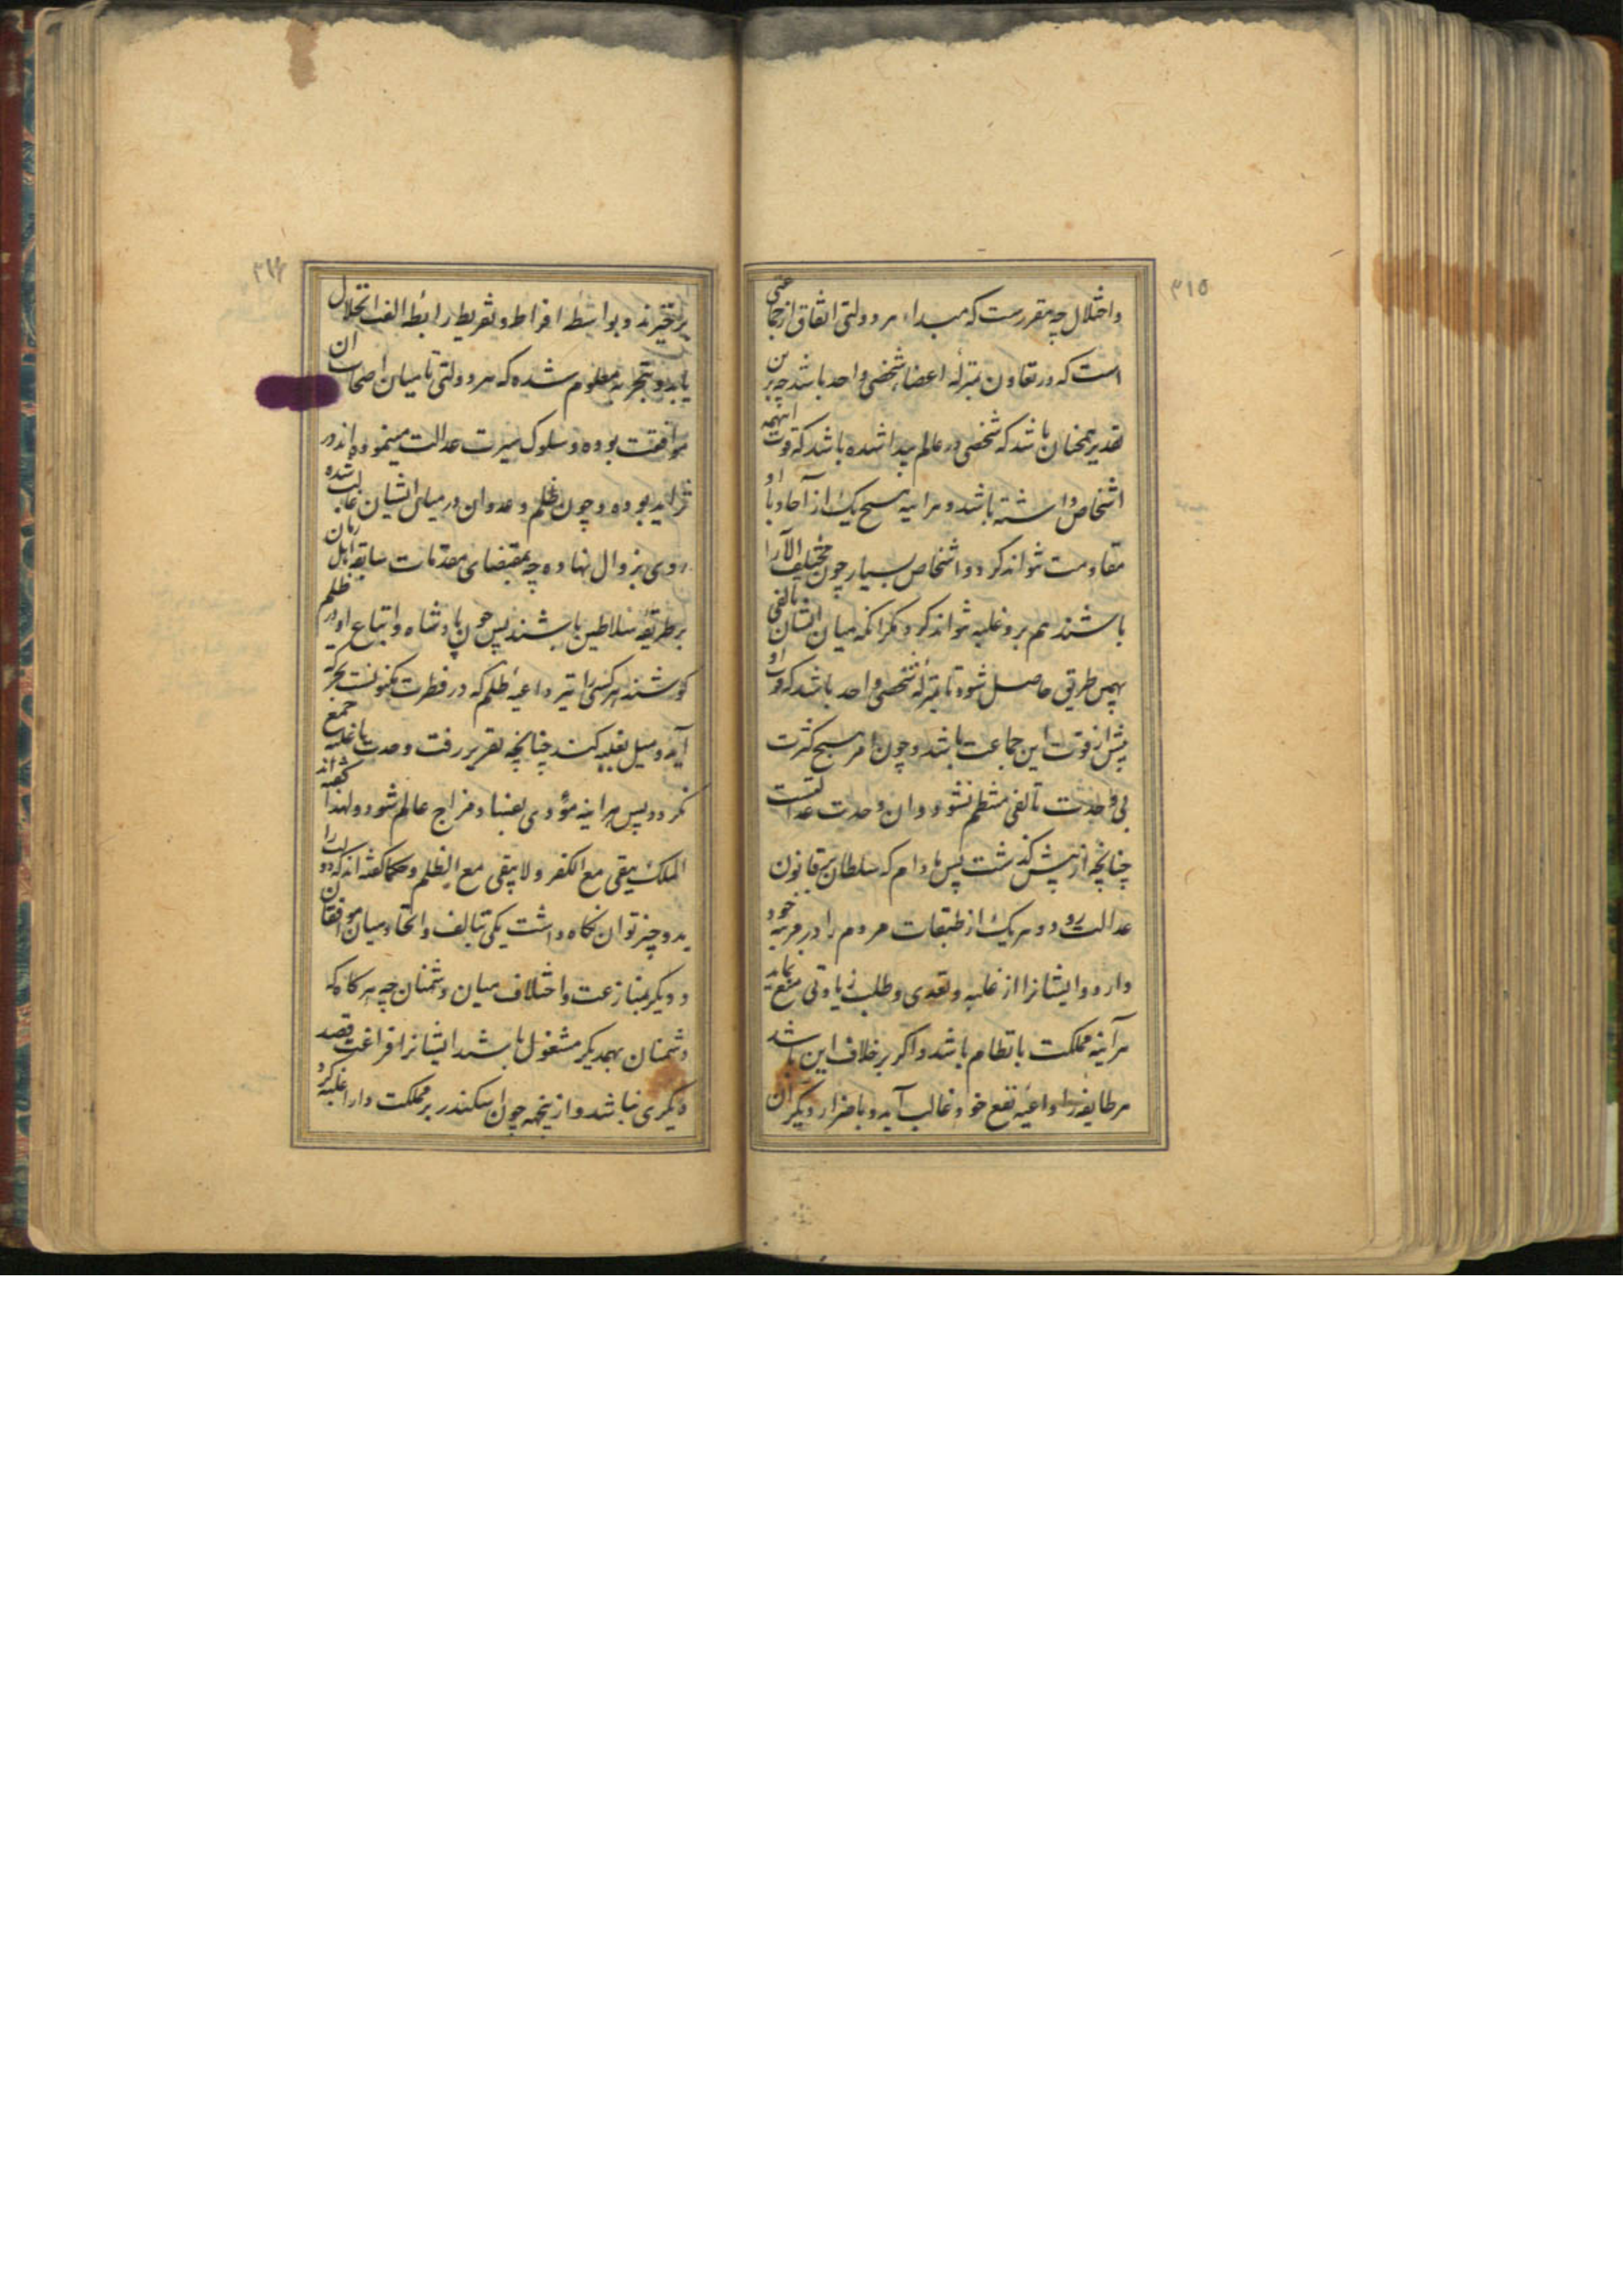 ۳۱۵
واختلال چه مقررست که مبداء هر دولتی اتفاق از جماعتی
است که در تعاون بمنزلهٔ اعضاء شخصی واحد باشد چه برین
تقدیر همچنان باشد که شخصی در عالم پیدا شده باشد که قوت اینهمه
اشخاص داشته باشد و هراینه هیچ یک از آحاد با او
مقاومت نتواند کرد و اشخاص بسیار چون مختلف الآرا
باشند هم برو غلبه نتواند کرد مکر آنکه میان ایشان تالفی
بهمین طریق حاصل شود تا بمنزلهٔ شخصی واحد باشد که قوت او
بیش از قوت این جماعت باشد و چون امر هیچ کثرت
بی وحدت تالفی منتظم نشود و ان وحدت عدالتست
چنانچه از پیش کذشت پس مادام که سلطان بر قانون
عدالت رود و هریک از طبقات مردم را در مرتبه خود
دارد و ایشانرا از غلبه و تعدی و طلب زیادتی منع نماید
هرآینه مملکت بانتظام باشد و اکر بر خلاف این باشد
هر طایفه را داعیهٔ نفع خود غالب آید و باضرار دیکران
۳۱۶
برخیزند و بواسطهٔ افراط و تفریط رابطهٔ الفت انحلال
یابد و بتجربه معلوم شده که هر دولتی تا میان اصحاب ان
موافقت بوده و سلوک سیرت عدالت مینموده اند در
تزاید بوده و چون ظلم و عدوان در میان ایشان غالب شده
روی بزوال نهاده چه بمقتضای مقدمات سابقه اهل زمان
بر طریقهٔ سلاطین باشند پس چون پادشاه و اتباع او در ظلم
کوشند هر کسی را نیز داعیهٔ ظلم که در فطرت مکنونست بحرکه
آید و میل بغلبه کند چنانچه تقریر رفت وحدت با غلبه جمع
نکردد پس هراینه مؤدی بفساد مزاج عالم شود و لهذا کفته اند
الملک یبقی مع الکفر ولا یبقی مع الظلم و حکما کفته اند که دولت را
بدو چیز توان نکاه داشت یکی تبالف و اتحاد میان موافقان
و دیکر بمنازعت و اختلاف میان دشمنان چه هرکاه که
دشمنان بهمدیکر مشغول باشند ایشانرا فراغت قصد
دیکری نباشد و ازینجهه چون اسکندر بر مملکت دارا غلبه کرد